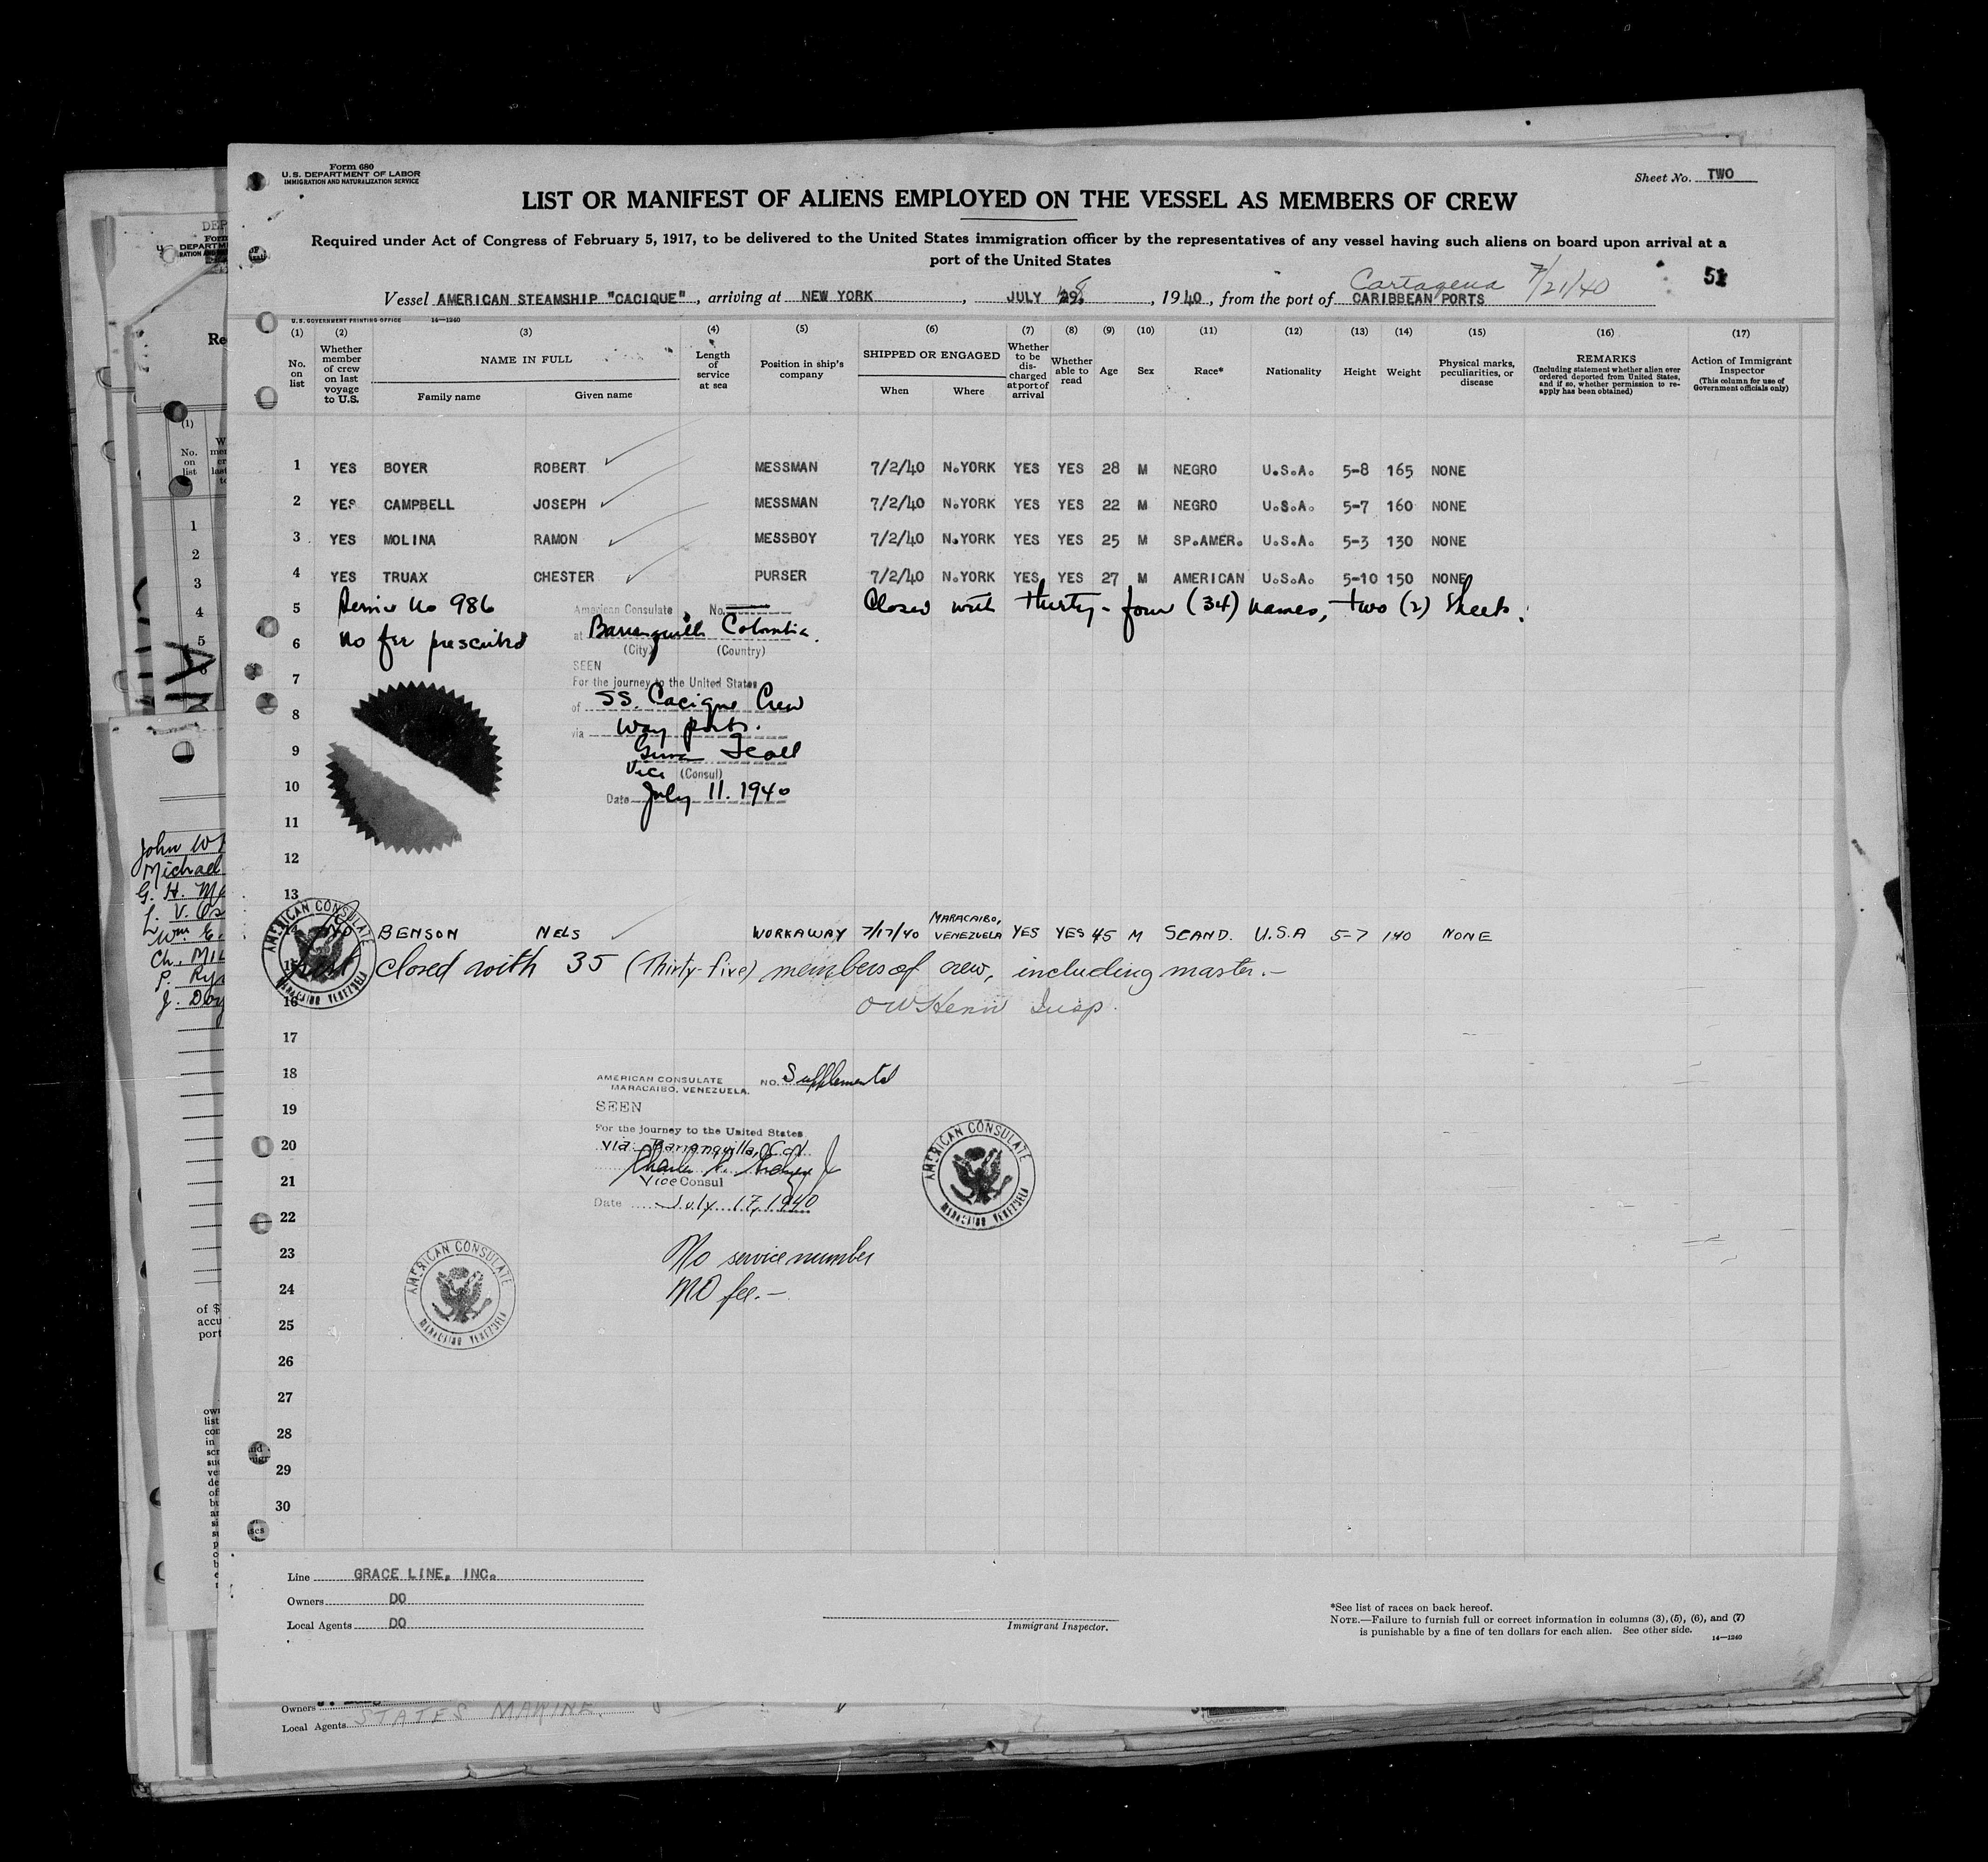 Form 680
U.S. DEPARTMENT OF LABOR
IMMIGRATION AND NATURALIZATION SERVICE
Sheet No. TWO
LIST OR MANIFEST OF ALIENS EMPLOYED ON THE VESSEL AS MEMBERS OF CREW
Required under Act of Congress of February 5, 1917, to be delivered to the United States immigration officer by the representatives of any vessel having such aliens on board upon arrival at a
port of the United States
Cartagena 7/21/40
51
Vessel AMERICAN STEAMSHIP "CACIQUE", arriving at NEW YORK, JULY 29, 1940, from the port of CARIBBEAN PORTS
U. S. GOVERNMENT PRINTING OFFICE 14—1240
(1) No. on list
(2) Whether member of crew on last voyage to U.S.
(3) NAME IN FULL
Family name Given name
(4) Length of service at sea
(5) Position in ship's company
(6) SHIPPED OR ENGAGED
When Where
(7) Whether to be discharged at port of arrival
(8) Whether able to read
(9) Age
(10) Sex
(11) Race*
(12) Nationality
(13) Height
(14) Weight
(15) Physical marks, peculiarities, or disease
(16) REMARKS
(Including statement whether alien ever ordered deported from United States, and if so, whether permission to reapply has been obtained)
(17) Action of Immigrant Inspector
(This column for use of Government officials only)
1 YES BOYER ROBERT MESSMAN 7/2/40 N.YORK YES YES 28 M NEGRO U.S.A. 5-8 165 NONE
2 YES CAMPBELL JOSEPH MESSMAN 7/2/40 N.YORK YES YES 22 M NEGRO U.S.A. 5-7 160 NONE
3 YES MOLINA RAMON MESSBOY 7/2/40 N.YORK YES YES 25 M SP.AMER. U.S.A. 5-3 130 NONE
4 YES TRUAX CHESTER PURSER 7/2/40 N.YORK YES YES 27 M AMERICAN U.S.A. 5-10 150 NONE
5 Service No 986 American Consulate No. Closed with thirty-four (34) names, two (2) sheets.
6 No fee prescribed at Barranquilla Colombia.
(City) (Country)
SEEN
7 For the journey to the United States
of SS. Cacique Crew
8 via way ports.
9
Vice (Consul)
10 Date July 11. 1940
11
12
13
AMERICAN CONSULATE
MARACAIBO VENEZUELA
14 NO BENSON NELS WORKAWAY 7/17/40 MARACAIBO, VENEZUELA YES YES 45 M SCAND. U.S.A 5-7 140 NONE
15 closed with 35 (Thirty-five) members of crew, including master.—
16 Insp.
17
18 AMERICAN CONSULATE NO. Supplemental
MARACAIBO, VENEZUELA.
19 SEEN
For the journey to the United States
20 via Barranquilla, Col.
21 Vice Consul
Date July 17, 1940
22
AMERICAN CONSULATE
MARACAIBO VENEZUELA
23 No service number
24 No fee.—
AMERICAN CONSULATE
MARACAIBO VENEZUELA
25
26
27
28
29
30
Line GRACE LINE, INC.
Owners DO
Local Agents DO
Immigrant Inspector.
*See list of races on back hereof.
NOTE.—Failure to furnish full or correct information in columns (3), (5), (6), and (7)
is punishable by a fine of ten dollars for each alien. See other side.
14—1240
Owners
Local Agents STATES MARINE.